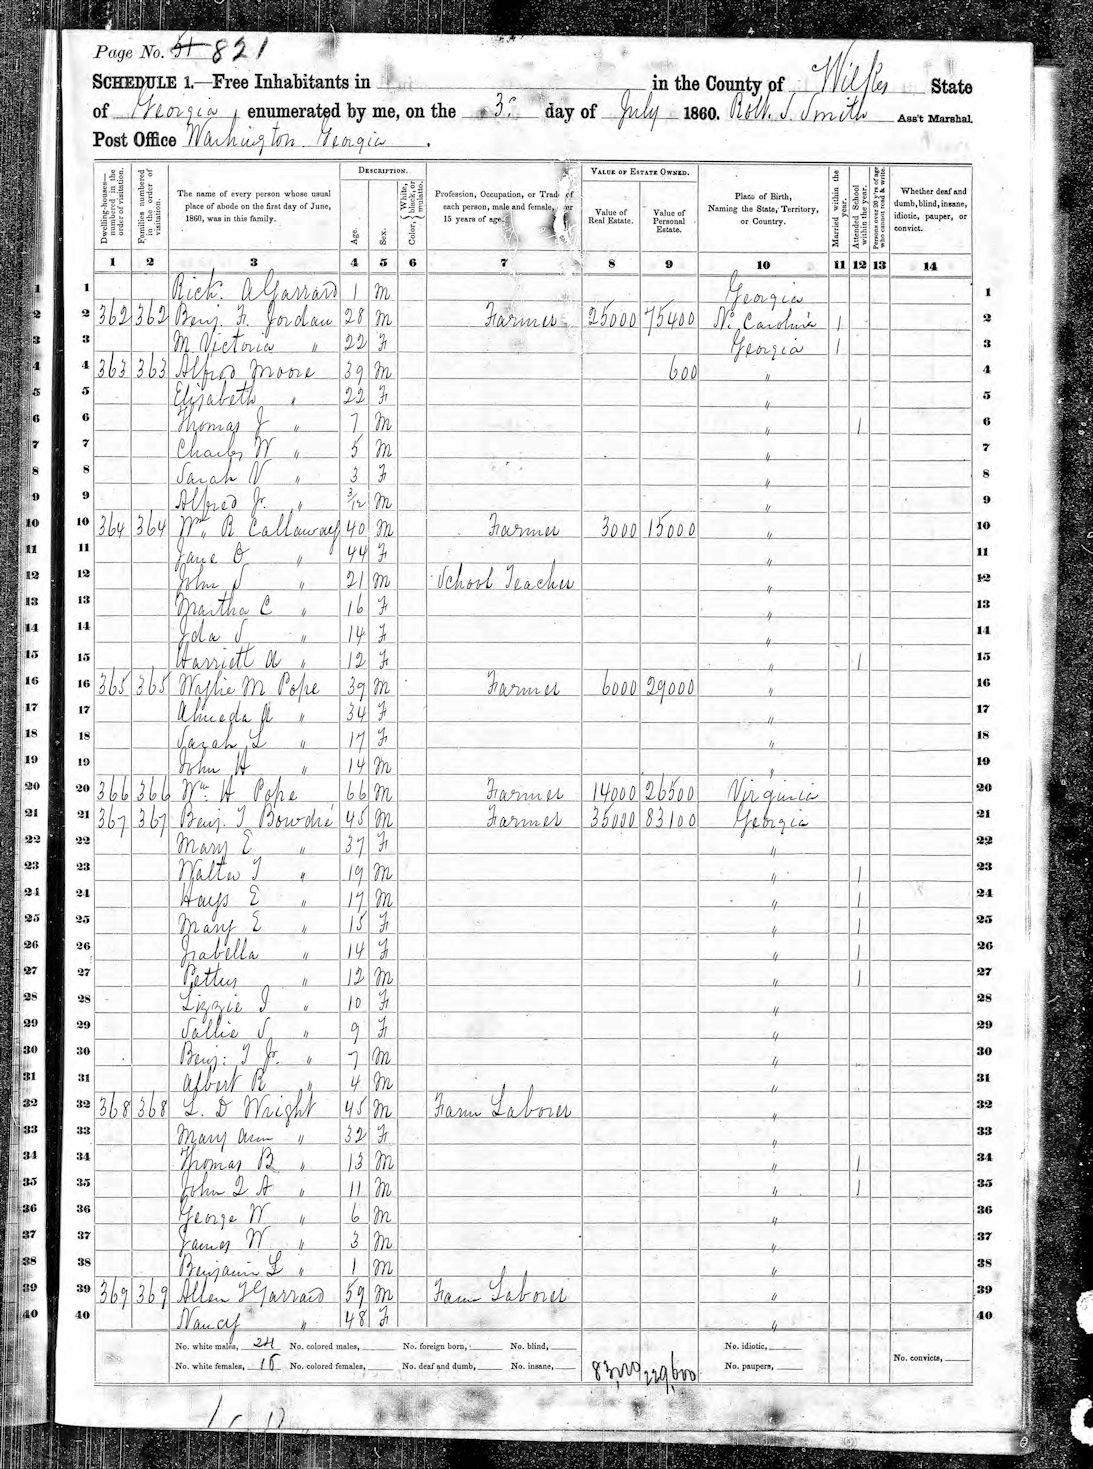 Page No. 51 821
SCHEDULE 1.—Free Inhabitants in in the County of Wilkes State
of Georgia, enumerated by me, on the 3d day of July 1860. Robt. S. Smith Ass't Marshal.
Post Office Washington Georgia.
Dwelling-houses—numbered in the order of visitation.
Families numbered in the order of visitation.
The name of every person whose usual place of abode on the first day of June, 1860, was in this family.
DESCRIPTION.
Age.
Sex.
Color, { White, black, or mulatto.
Profession, Occupation, or Trade of each person, male and female, over 15 years of age.
VALUE OF ESTATE OWNED.
Value of Real Estate.
Value of Personal Estate.
Place of Birth, Naming the State, Territory, or Country.
Married within the year.
Attended School within the year.
Persons over 20 y'rs of age who cannot read & write.
Whether deaf and dumb, blind, insane, idiotic, pauper, or convict.
1 2 3 4 5 6 7 8 9 10 11 12 13 14
1 1 Rich. A Garrard 1 M Georgia 1
2 2 362 362 Benj. F. Jordan 28 M Farmer 25000 75400 N. Carolina 1 2
3 3 M Victoria " 22 F Georgia 1 3
4 4 363 363 Alfred Moore 39 M 600 " 4
5 5 Elizabeth " 22 F " 5
6 6 Thomas J " 7 M " 1 6
7 7 Charles W " 5 M " 7
8 8 Sarah V " 3 F " 8
9 9 Alfred Jr. " 3/12 M " 9
10 10 364 364 Wm. R Callaway 40 M Farmer 3000 15000 " 10
11 11 Jane O " 44 F " 11
12 12 John S " 21 M School Teacher " 12
13 13 Martha C " 16 F " 13
14 14 Ida S " 14 F " 14
15 15 Harriett A " 12 F " 1 15
16 16 365 365 Wylie M Pope 39 M Farmer 6000 29000 " 16
17 17 Almeda A " 34 F " 17
18 18 Sarah L " 17 F " 18
19 19 John H " 14 M " 19
20 20 366 366 Wm. H Pope 66 M Farmer 14000 26500 Virginia 20
21 21 367 367 Benj. T Bowdré 45 M Farmer 35000 83100 Georgia 21
22 22 Mary E " 37 F " 22
23 23 Walter T " 19 M " 1 23
24 24 Hays E " 17 M " 1 24
25 25 Mary E " 15 F " 1 25
26 26 Isabella " 14 F " 1 26
27 27 Pettus " 12 M " 1 27
28 28 Lizzie J " 10 F " 28
29 29 Sallie S " 9 F " 29
30 30 Benj: T Jr. " 7 M " 30
31 31 Albert R " 4 M " 31
32 32 368 368 L. D Wright 45 M Farm Laborer " 32
33 33 Mary Ann " 32 F " 33
34 34 Thomas B " 13 M " 1 34
35 35 John Q A " 11 M " 1 35
36 36 George W " 6 M " 36
37 37 James W " 3 M " 37
38 38 Benjamin L " 1 M " 38
39 39 369 369 Allen T Garrard 59 M Farm Laborer " 39
40 40 Nancy " 48 F " 40
No. white males, 24 No. colored males, No. foreign born, No. blind, No. idiotic,
No. white females, 16 No. colored females, No. deaf and dumb, No. insane, 83,000 229,600 No. paupers, No. convicts,